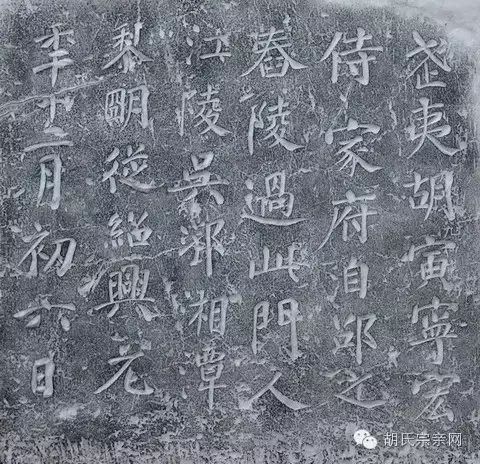 武夷胡寅寧宏
侍家府洎邵之
舂陵過此門人
江陵吳郢湘潭
黎明從紹興元
年十二月初六日
胡氏宗亲网